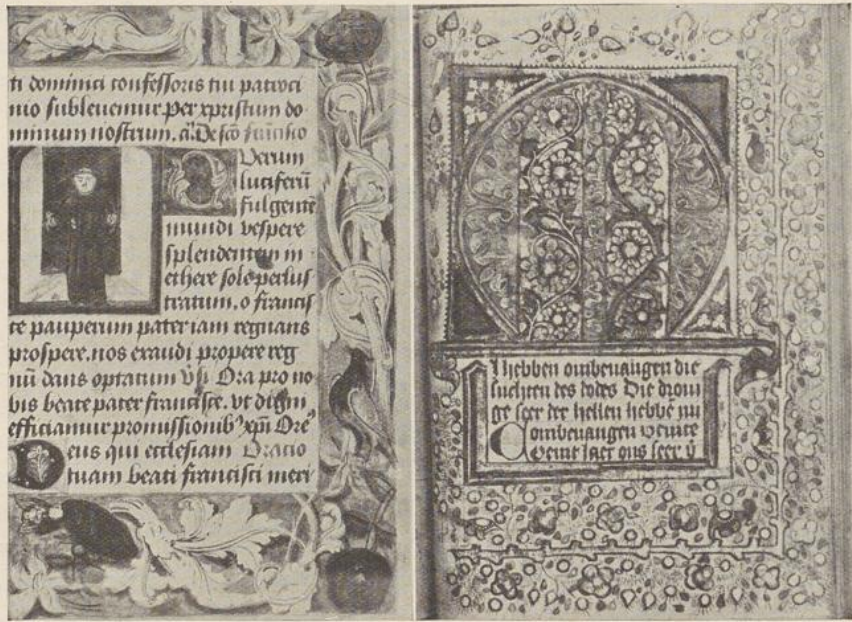 ti dominici confessoris tui patroci
nio sublevemur per xpristum do
minum nostrum. a. De sco francisco
Verum
luciferū
fulgentē
mundi vespere
splendentem in
ethere sole perlus
tratum. o francis
ce pauperum pater iam regnans
prospere. nos exaudi propere reg
nū dans optatum Ora pro no
bis beate pater francisce. vt digni
efficiamur promissionib⁹ xpi Ore
Deus qui ecclesiam Oracio
tuam beati francisci meri
M
hebben ombevangen die
suchten des dodes Die drovi
ge seer der hellen hebbē mi
ombevangen venite
Coemt laet ons seer v̄